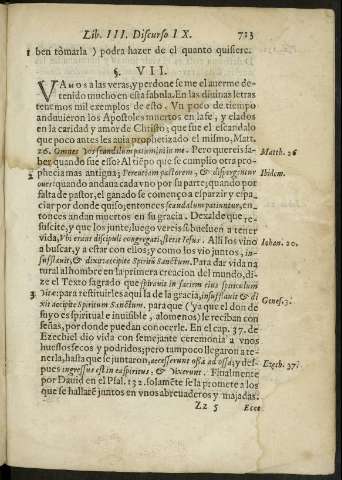 Lib. III. Discurso IX. 713
1 ben tòmarla ) podra hazer de el quanto quisiere.
§. VII.
VAmos a las veras, y perdone se me el auerme de-
tenido mucho en esta fabula. En las diuinas letras
tenemos mil exemplos de esto. Vn poco de tiempo
anduuieron los Apostoles muertos en la fè, y elados
en la caridad y amor de Christo; que fue el escandalo
que poco antes les auia prophetizado el mismo, Mat.
26. Omnes vos scandalum patiemini in me. Pero quereis sa-
Matth. 26
ber quando fue esso? Al tiẽpo que se cumplio otra pro-
2 phecia mas antigua; Percutiam pastorem, & dispergentur
Ibidem.
oues: quando andaua cada vno por su parte; quando por
falta de pastor, el ganado se començo a esparzir y espa-
ciar por donde quiso; entonces scandalum patiuntur, en-
tonces andan muertos en su gracia. Dexalde que re-
suscite, y que los junte; luego vereis bueluen a tener
vida, Vbi erant discipuli congregati, stetit Iesus. Alli los vino
Iohan. 20.
a buscar, y a estar con ellos; y como los vio juntos, in-
sufflauit, & dixit accipite Spiritũ Sanctum. Para dar vida na
tural al hombre en la primera creacion del mundo, di-
ze el Texto sagrado que spirauit in faciem eius spiraculum
3 vitæ: para restituirles aqui la de la gracia, insufflauit & di
Genes. 3.
xit accipite Spiritum Sanctum. para que (ya que el don de
suyo es spiritual e inuisible, alomenos) le reciban con
señas, por donde puedan conocerle. En el cap. 37. de
Ezechiel dio vida con semejante ceremonia a vnos
huessos secos y podridos; pero tampoco llegaron a te-
nerla, hasta que se juntaron, accesserunt ossa ad ossa; y des-
Ezech. 37.
pues ingressus est in ea spiritus, & vixerunt. Finalmente
por Dauid en el Psal. 132. solamẽte se la promete a los
que se hallarẽ juntos en vnos abreuaderos y majadas.
Zz 5 Ecce